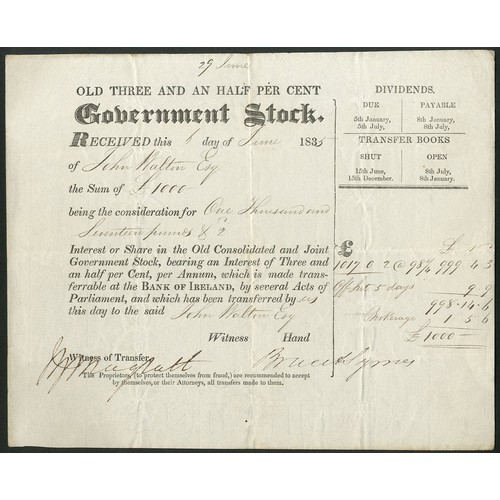 29 June
OLD THREE AND AN HALF PER CENT
Government Stock.
RECEIVED this 6 day of June 1835
of John Walton Esq
the Sum of £1000
being the consideration for One Thousand and
Seventeen pounds & 2
Interest or Share in the Old Consolidated and Joint
Government Stock, bearing an Interest of Three and
an half per Cent, per Annum, which is made trans-
ferable at the BANK OF IRELAND, by several Acts of
Parliament, and which has been transferred by us
this day to the said John Walton Esq
Witness Hand
Witness of Transfer,
Bruce & Symes
The Proprietors, (to protect themselves from fraud,) are recommended to accept
by themselves, or their Attorneys, all transfers made to them.
DIVIDENDS.
DUE PAYABLE
5th January, 8th January,
5th July, 8th July,
TRANSFER BOOKS
SHUT OPEN
15th June, 8th July,
15th December. 8th January.
£
1017 0 2 @ 98 999 4 3
5 days 9 9
998-14-6
Brokerage 1 5 6
£1000